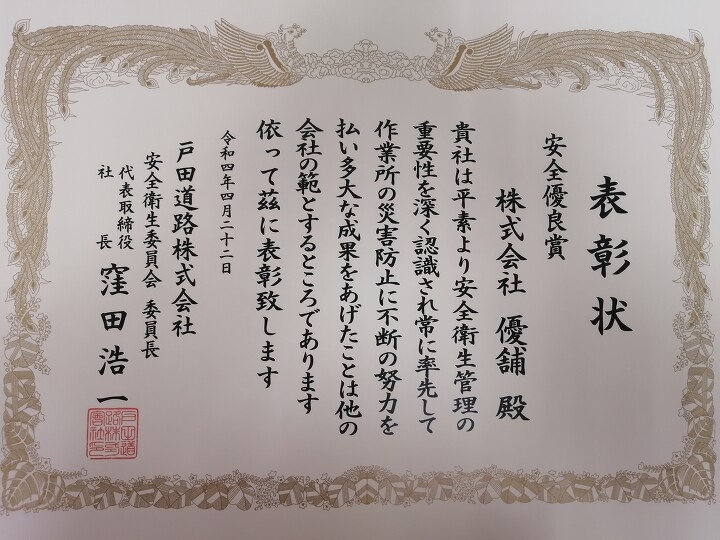 表彰状
安全優良賞
株式会社 優舗 殿
貴社は平素より安全衛生管理の
重要性を深く認識され常に率先して
作業所の災害防止に不断の努力を
払い多大な成果をあげたことは他の
会社の範とするところであります
依って茲に表彰致します
令和四年四月二十二日
戸田道路株式会社
安全衛生委員会 委員長
代表取締役
社長 窪田浩一